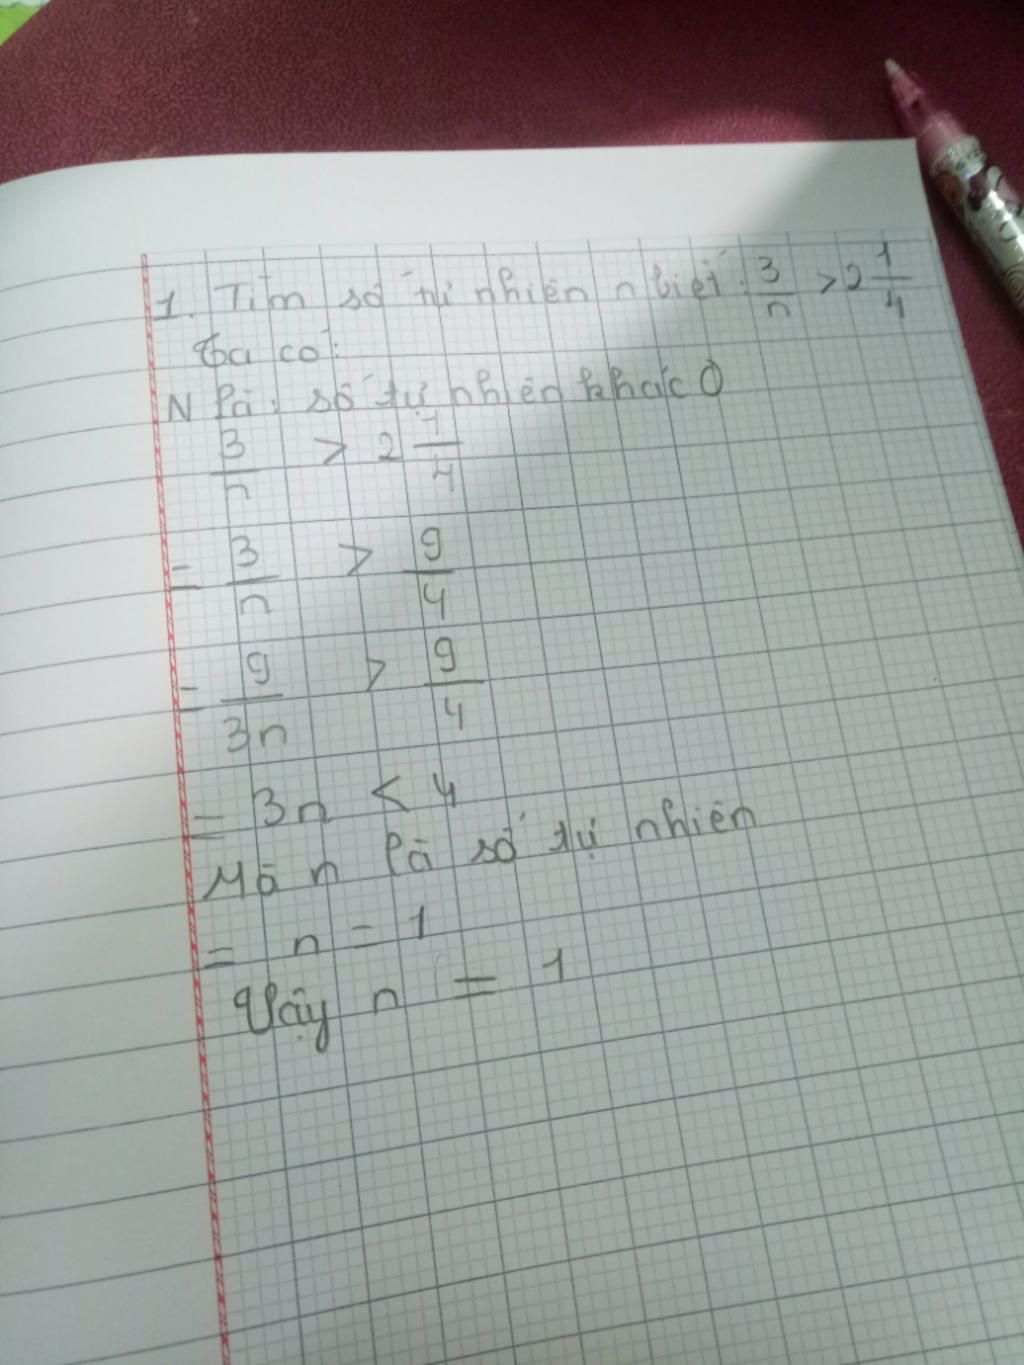 1. Tìm số tự nhiên n biết: 3/n > 2 1/4
Ta có:
N là: số tự nhiên khác 0
3/n > 2 1/4
= 3/n > 9/4
= 9/3n > 9/4
= 3n < 4
Mà n là số tự nhiên
= n = 1
Vậy n = 1